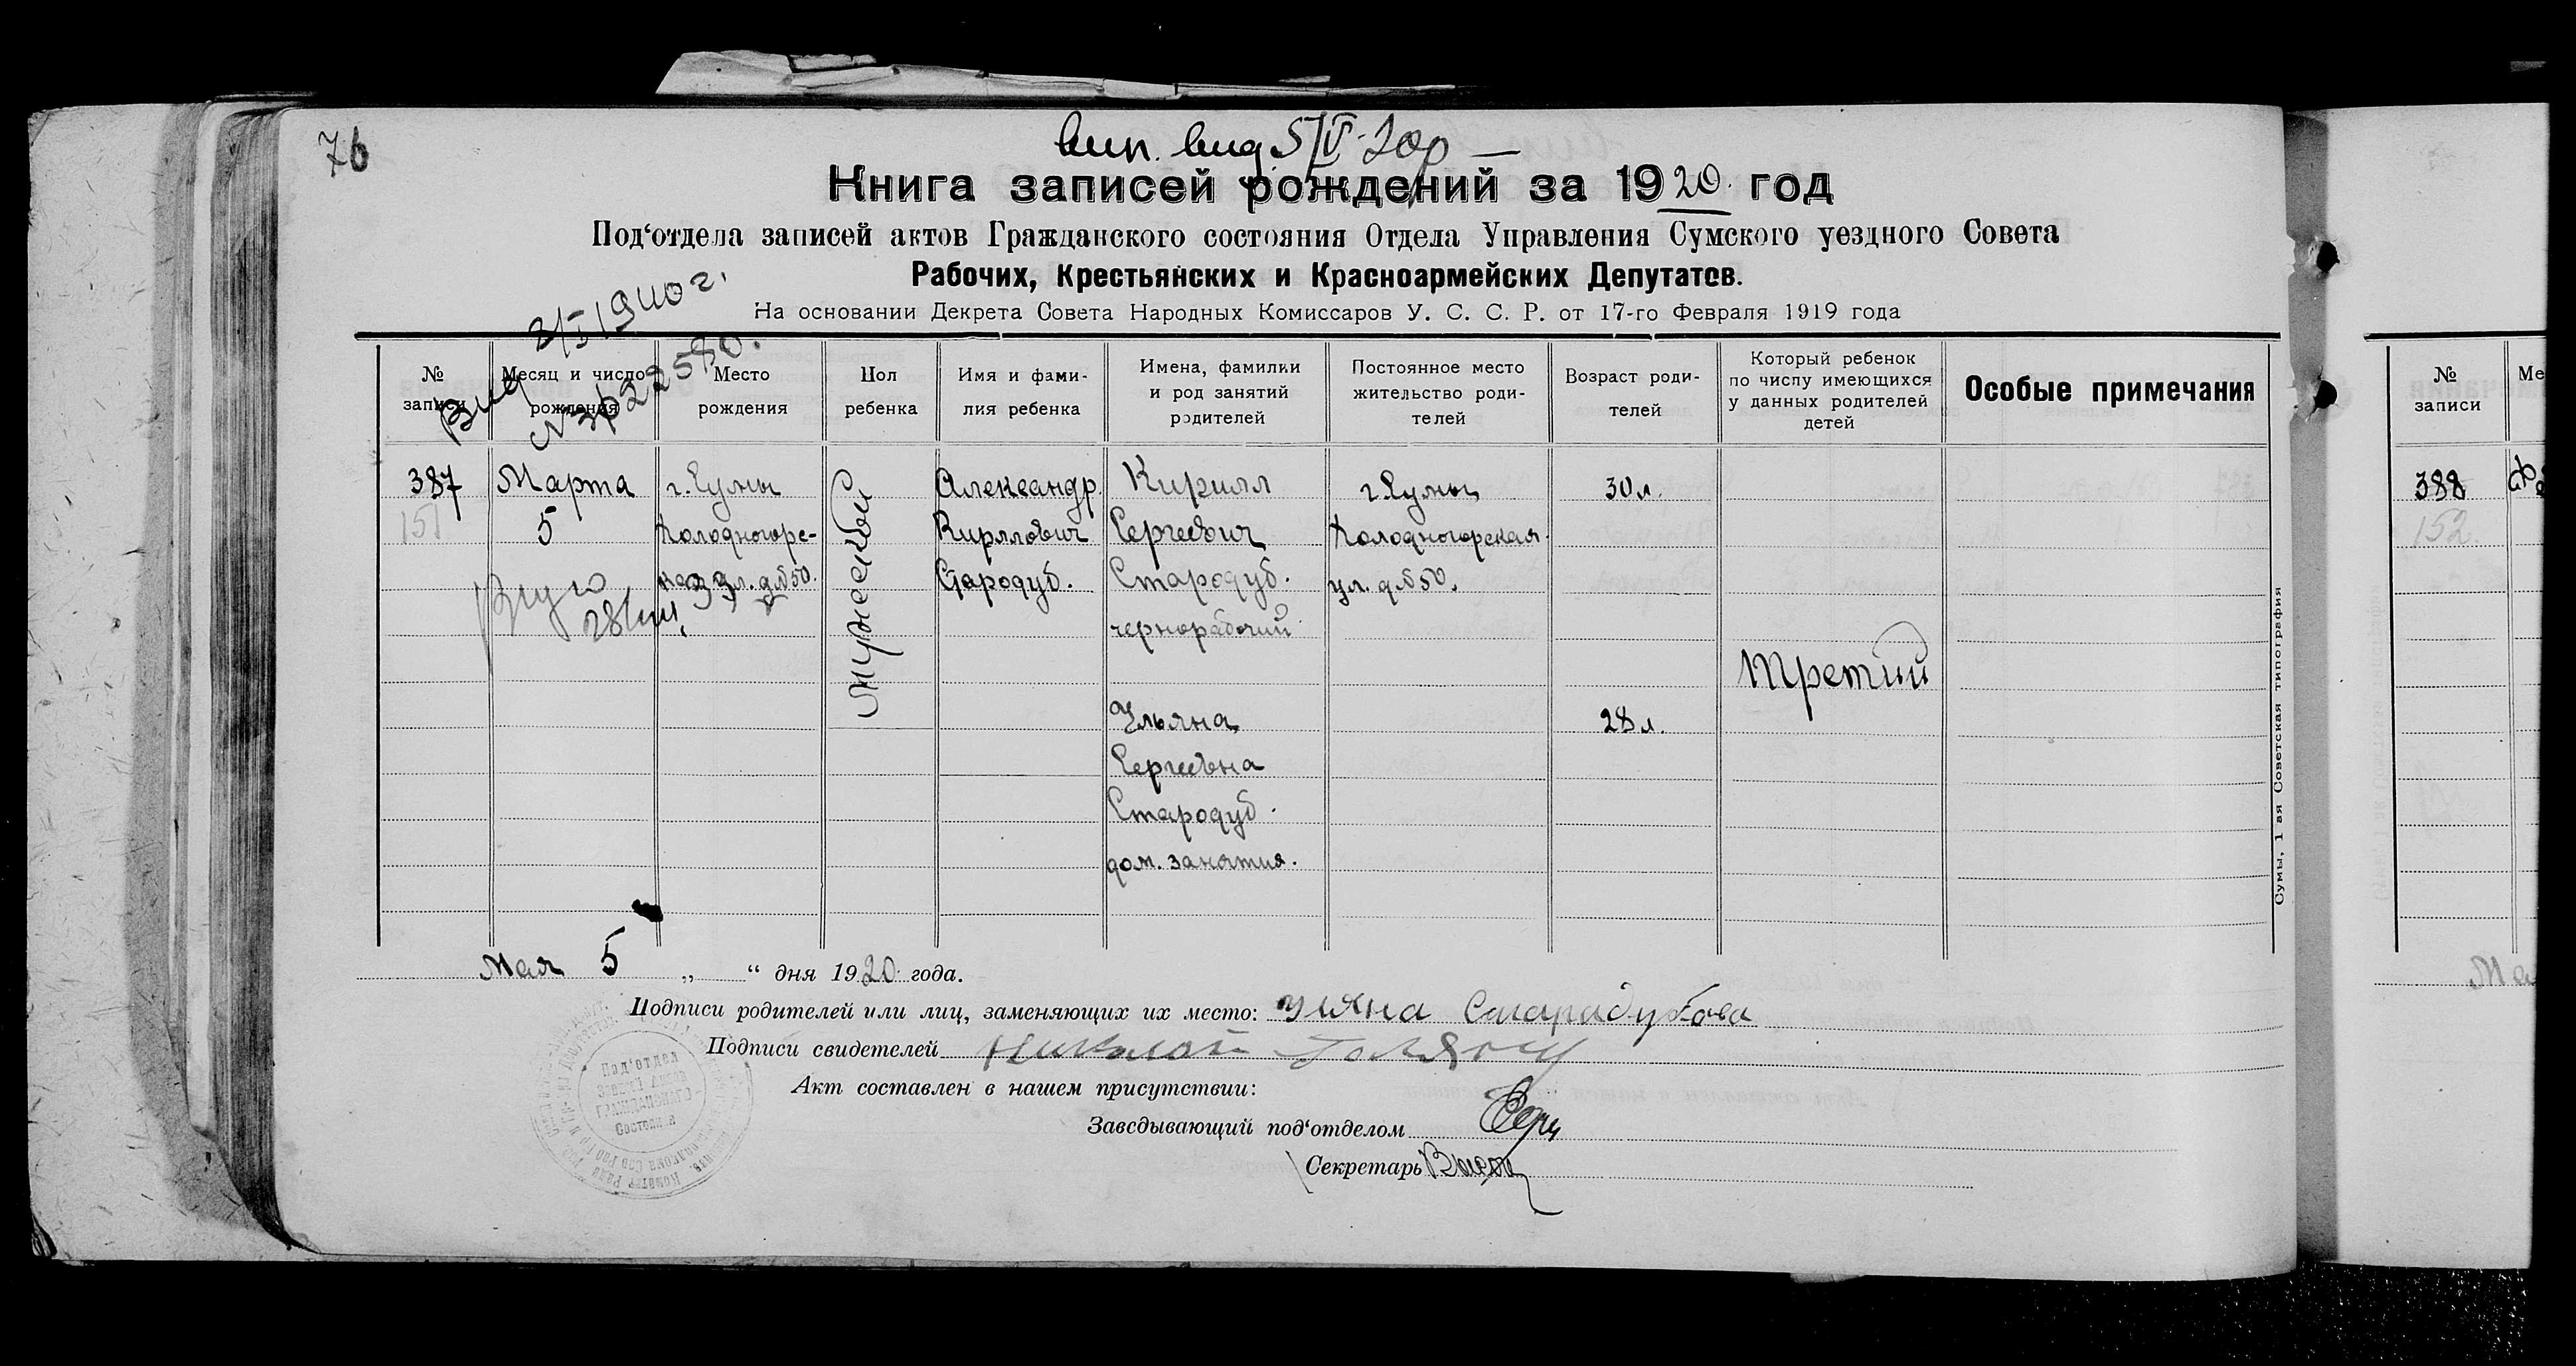 76
вип. вид. 5/V-20р
Книга записей рождений за 1920 год
Под‘отдела записей актов Гражданского состояния Отдела Управления Сумского уездного Совета
Рабочих, Крестьянских и Красноармейских Депутатов.
На основании Декрета Совета Народных Комиссаров У. С. С. Р. от 17-го Февраля 1919 года
8/I 1940 г.
№ записи
Месяц и число рождения
Место рождения
Пол ребенка
Имя и фами-
лия ребенка
Имена, фамилии
и род занятий
родителей
Постоянное место
жительство роди-
телей
Возраст роди-
телей
Который ребенок
по числу имеющихся
у данных родителей
детей
Особые примечания
387
151
Марта
5
г. Сумы
Холодногорс-
кая ул. д №50.
мужеской
Александр
Кирллович
Стародуб.
Кирилл
Сергеевич
Стародуб.
чернорабочий
Ульяна
Сергеевна
Стародуб.
дом. занятия.
г. Сумы
Холодногорская
ул. д №50.
30 л.
28 л.
Третий
Мая 5 „ “ дня 1920 года.
Подписи родителей или лиц, заменяющих их место: Уляна Старадубова
Подписи свидетелей Николай
Акт составлен в нашем присутствии:
Заведывающий под‘отделом
Секретарь
Под‘отдел
Записей Актов
Гражданского
Состояния
Сумы, 1 ая Советская типография
№
записи
Ме
388
152.
Ма